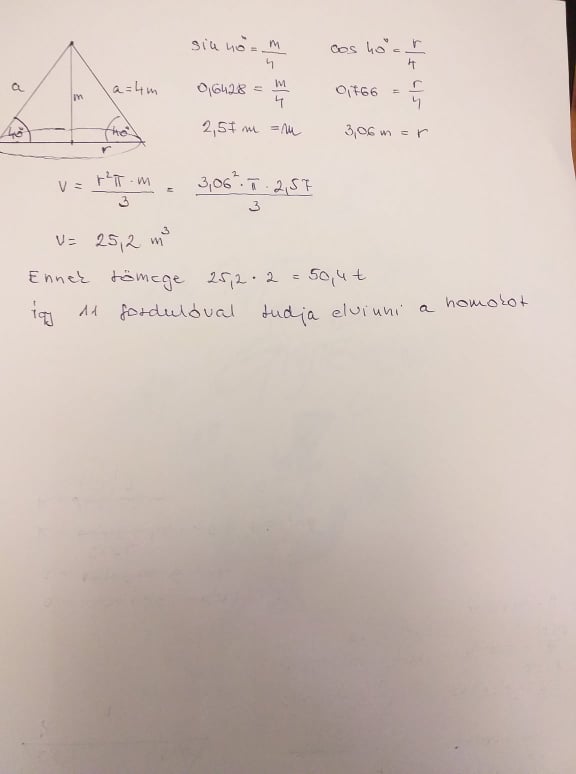 sin 40° = m/4   cos 40° = r/4
a   a = 4m   m   0,6428 = m/4   0,766 = r/4
40°   40°   r   2,57 m = m   3,06 m = r
V = r²π · m / 3 = 3,06² · π · 2,57 / 3
V = 25,2 m³
Ennek tömege 25,2 · 2 = 50,4 t
így 11 fordulóval tudja elvinni a homokot